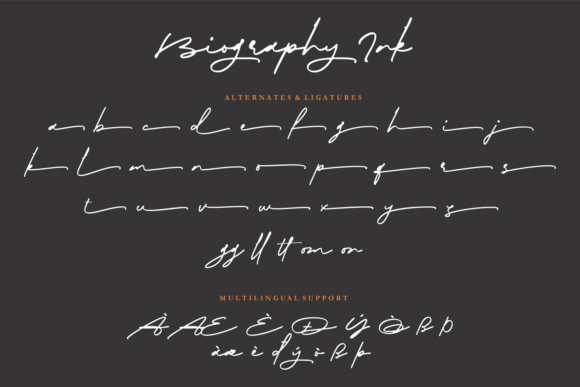 Biography Ink
ALTERNATES & LIGATURES
a b c d e f g h i j
k l m n o p q r s
t u v w x y s
gg ll tt om on
MULTILINGUAL SUPPORT
À Æ È Ð Ý Ò ß Þ
à æ è ð ý ò ß þ